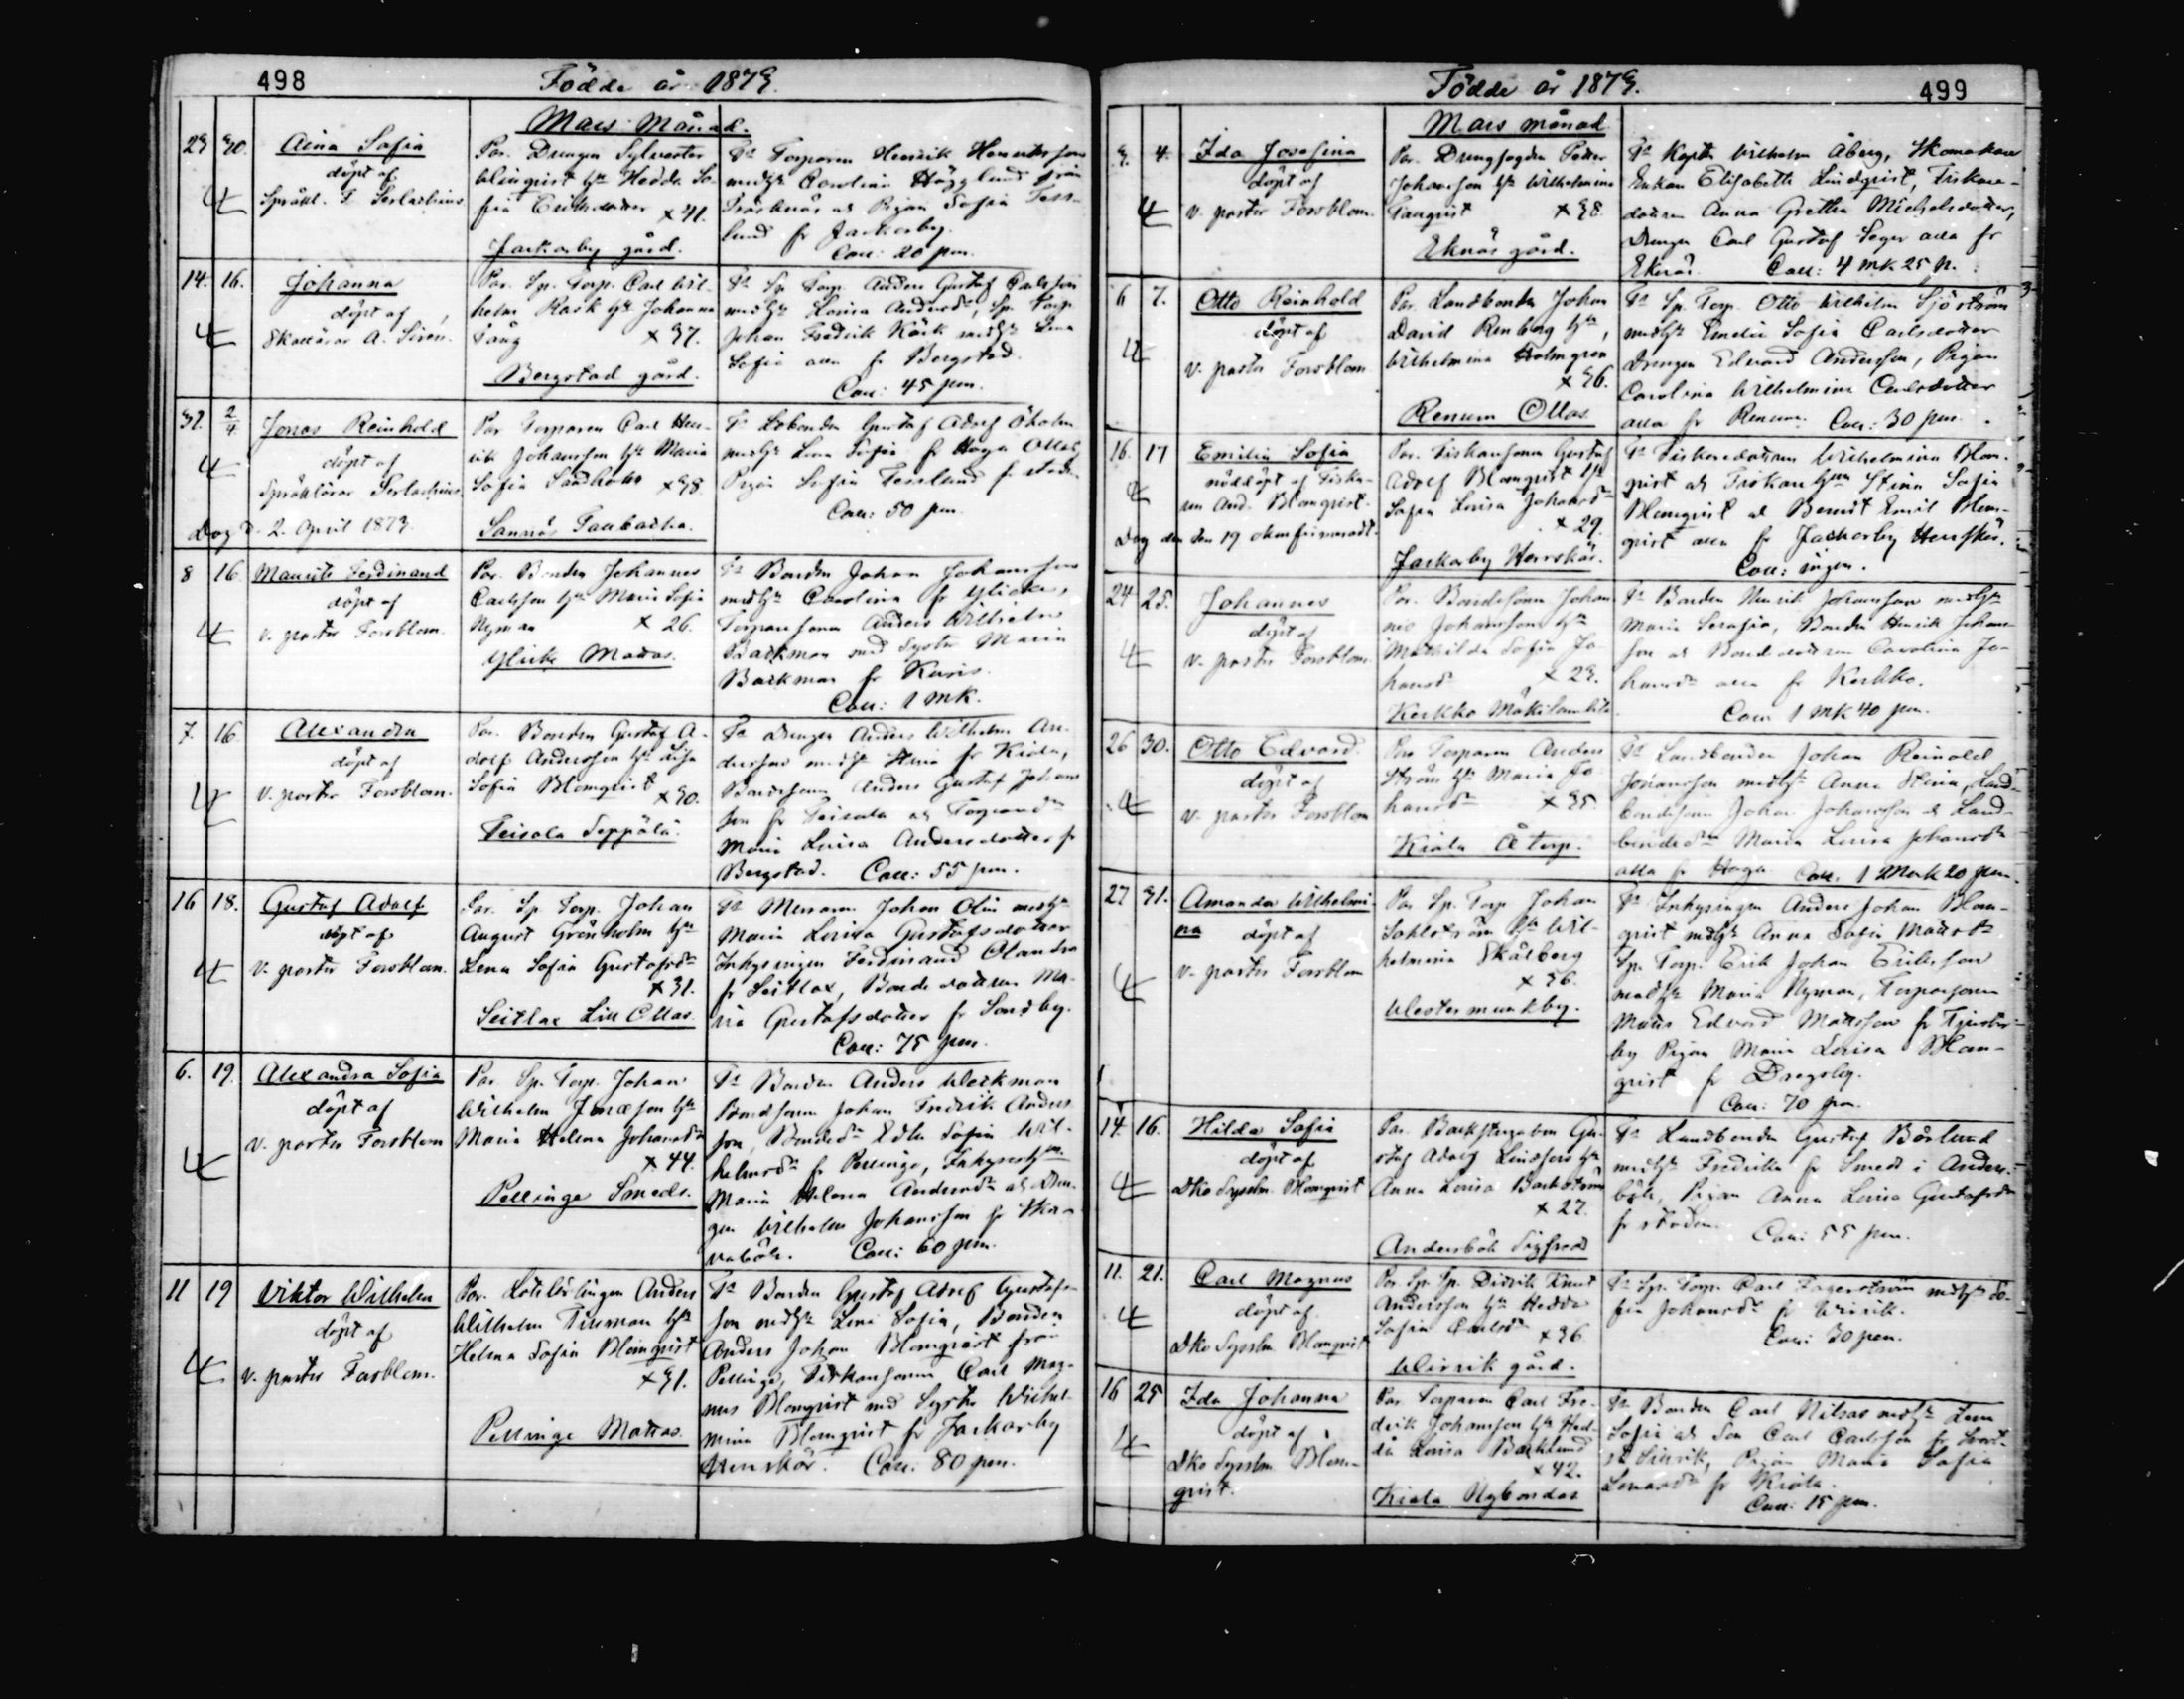 498
Födde år 1873.
Mars Månad.
23 30. Aina Sofia
döpt af
Språkl. F Serlachius
Par. Drengen Sylvester
blinqvist hu Hedda So-
fia Eriksdotter x 41.
Jackarby gård.
Fa Torparen Henrik Henriksson
medhu Carolina Hägglund från
Träsknäs och Pigan Sofia Tess-
lund fr Jackarby.
Coll: 20 pen.
14. 16. Johanna
döpt af
Skollärar A. Sirén.
Par. Sp. Torp. Carl Wil-
helm Rask hu Johanna
Tång x 37.
Bergstad gård.
Fa Sp Torp. Anders Gustaf Carlsson
medhu Lovisa Andersdr, Sp. Torp.
Johan Fredrik Rask medhu Lena
Sofia alla fr Bergstad.
Coll: 45 pen.
31. 2/4 Jonas Reinhold
döpt af
Språklärar Serlachius
Dog d. 2. April 1873.
Par Torparen Carl Hen-
rik Johansson hu Maria
Sofia Sandholm x 38.
Sannäs Taubacka.
Fa Lobonden Gustaf Adolf Öholm
medhu Lena Sofia fr Haga Ollas,
Pigan Sofia Tesslund fr staden.
Coll: 50 pen.
8 16 Maurits Ferdinand
döpt af
v. pastor Forsblom.
Par. Bonden Johannes
Carlsson hu Maria Sofia
Nyman x 26.
Ylicke Mattas.
Fa Bonden Johan Johansson
medhu Carolina fr Ylicke,
Torparsonen Anders Wilhelm
Backman med syster Maria
Backman fr Karis.
Coll: 1 mk.
7. 16. Alexandra
döpt af
v. pastor Forsblom.
Par. Bonden Gustaf A-
dolf Andersson hu Lisa
Sofia Blomqvist x 30.
Teisala Seppälä.
Fa Drengen Anders Wilhelm An-
dersson medhu Hena fr Kiala,
Bondsonen Anders Gustaf Johans
son fr Teisala och Torparedr
Maria Lovisa Andersdotter fr
Bergstad. Coll: 55 pen.
16 18. Gustaf Adolf
döpt af
v. pastor Forsblom.
Par. Sp Torp. Johan
August Grönholm hu
Lena Sofia Gustafsdr
x 31.
Seitlax Lill Ollas.
Fa Muraren Johan Olin medhu
Maria Lovisa Gustafsdotter
Inhysingen Ferdinand Olander
fr Seitlax, Bondedottren Ma-
ria Gustafsdotter fr Sondby.
Coll: 75 pen.
6. 19. Alexandra Sofia
döpt af
v. pastor Forsblom
Par. Sp. Torp. Johan
Wilhelm Jonasson hu
Maria Helena Johansdr
x 44.
Pellinge Smeds.
Fa Bonden Anders Weckman
Bondsonen Johan Fredrik Anders
son, Bondedr Edla Sofia Wil-
helmsdr fr Pellinge, Inhyseshu
Maria Helena Andersdr och Dren-
gen Wilhelm Johansson fr Ska-
vaböle. Coll: 60 pen.
11 19 Viktor Wilhelm
döpt af
v. pastor Forsblom.
Par. Lotslärlingen Anders
Wilhelm Tillman hu
Helena Sofia Blomqvist
x 31.
Pellinge Mattas.
Fa Bonden Gustaf Adolf Gustafs-
son medhu Lena Sofia, Bonden
Anders Johan Blomqvist från
Pellinge, Fiskarsonen Carl Mag-
nus Blomqvist med Syster Wilhel-
mina Blomqvist fr Jackarby
Herrskär. Coll: 80 pen.
499
Födde år 1873.
Mars månad
3. 4. Ida Josefina
döpt af
v. pastor Forsblom.
Par. Drengfogden Petter
Johansson hu Wilhelmina
Tanqvist x 38.
Eknäs gård.
Fa Kapten Wilhelm Åberg, Skomakare
Enkan Elisabeth Lindqvist, Fiskare-
dottren Anna Gretha Michelsdotter,
Drengen Carl Gustaf Seger alla fr
Eknäs. Coll: 4 mk 25 p.
6 7. Otto Reinhold
döpt af
v. pastor Forsblom
Par. Landbonden Johan
David Renberg hu,
Wilhelmina Holmgren
x 36.
Renum Ollas.
Fa Sp. Torp. Otto Wilhelm Sjöström
medhu Emelie Sofia Carlsdotter
Drengen Edvard Andersson, Pigan
Carolina Wilhelmina Carlsdotter
alla fr Renum. Coll: 30 pen.
16. 17 Emilia Sofia
nöddöpt af Fiska-
ren And. Blomqvist.
Dog den 19 okonfirmeradt.
Par. Fiskarsonen Gustaf
Adolf Blomqvist hu
Sofia Lovisa Johansdr
x 29.
Jackarby Herrskär.
Fa Fiskaredottren Wilhelmina Blom-
qvist och Fiskarehun Stina Sofia
Blomqvist och Berndt Emil Blom-
qvist alla fr Jackarby Herrskär.
Coll: ingen.
24 25. Johannes
döpt af
v. pastor Forsblom
Par. Bondesonen Johan-
nes Johansson hu
Mathilda Sofia Jo-
hansdr x 23.
Kerkko Mäkilambila.
Fa Bonden Henrik Johansson medhu
Maria Serafia, Bonden Henrik Johans-
son och Bondedottren Carolina Jo-
hansdr alla fr Kerkko.
Coll 1 mk 40 pen.
26 30. Otto Edvard.
döpt af
v. pastor Forsblom
Par Torparen Anders
Ström hu Maria Jo-
hansdr x 35
Kiala Å torp.
Fa Landbonden Johan Reinold
Johansson medhu Anna Stina, Land-
bondsonen Johan Johansson och Land-
bondedr Maria Lovisa Johansdr
alla fr Haga Coll. 1 Mark 20 pen.
27 31. Amanda Wilhelmi-
na döpt af
v. pastor Forsblom
Par Sp. Torp Johan
Sahlström hu Wil-
helmina Skålberg
x 36.
Westermunkby.
Fa Inhysingen Anders Johan Blom-
qvist medhu Anna Sofia Mattsdr
Sp. Torp. Erik Johan Eriksson
medhu Maria Nyman, Torparsonen
Matts Edvard Mattsson fr Tjuster-
by Pigan Maria Lovisa Blom-
qvist fr Dregsby.
Coll: 70 pen.
14. 16. Hilda Sofia
döpt af
Dko Sysslm. Blomqvist
Par. Backstugubon Gu-
staf Adolf Lindfors hu
Anna Lovisa Backström
x 27.
Andersböle Sigfreds
Fa Landbonden Gustaf Börlund
medhu Fredrika fr Smeds i Anders-
böle, Pigan Anna Lovisa Gustafsdr
fr staden. Coll: 55 pen.
11. 21. Carl Magnus
döpt af
Dko Sysslm Blomqvist
Par Sp. Sp. Didrik Knut
Andersson hu Hedda
Sofia Carlsdr x 36
Wirvik gård.
Fa Sp. Torp. Carl Fagerström medhu So-
fia Johansdr fr Wirvik.
Coll: 30 pen.
16 25 Ida Johanna
döpt af
Dko Sysslm Blom-
qvist.
Par Torparen Carl Fre-
drik Johansson hu Hed-
da Lovisa Backlund
x 42.
Kiala Nybondas
Fa Bonden Carl Nilsas medhu Lena
Sofia och Son Carl Carlsson fr
Pigan Maria Sofia
fr Kiala.
Coll: 15 pen.